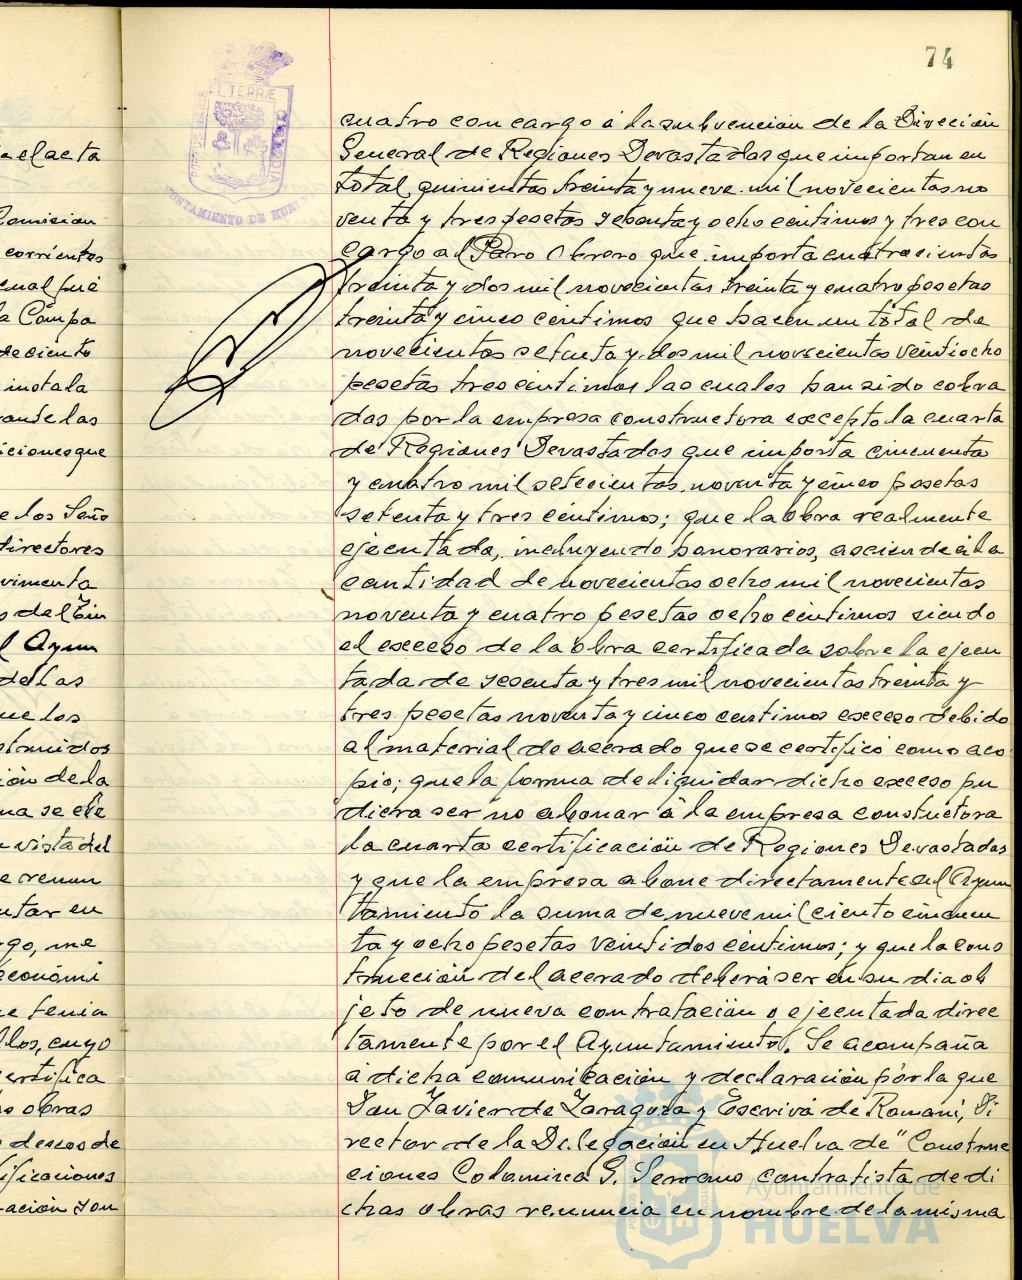 74
TERRÆ
AYUNTAMIENTO DE HUELVA
cuatro con cargo á la subvención de la Dirección
General de Regiones Devastadas que importan en
total, quinientas treinta y nueve mil novecientas no
venta y tres pesetas sesenta y ocho centimos y tres con
cargo al Paro Obrero que importa cuatrocientas
treinta y dos mil novecientas treinta y cuatro pesetas
treinta y cinco centimos que hacen un total de
novecientas setenta y dos mil novecientas veintiocho
pesetas tres centimos las cuales han sido cobra
das por la empresa constructora excepto la cuarta
de Regiones Devastadas que importa cincuenta
y cuatro mil setecientas noventa y cinco pesetas
setenta y tres centimos; que la obra realmente
ejecutada, incluyendo honorarios, asciende á la
cantidad de novecientas ocho mil novecientas
noventa y cuatro pesetas ocho centimos siendo
el exceso de la obra certificada sobre la ejecu
tada de sesenta y tres mil novecientas treinta y
tres pesetas noventa y cinco centimos exceso debido
al material de acerado que se certificó como aco
pio; que la forma de liquidar dicho exceso pu
diera ser no abonar á la empresa constructora
la cuarta certificación de Regiones Devastadas
y que la empresa abone directamente al Ayun
tamiento la suma de nueve mil ciento cincuen
ta y ocho pesetas veintidos centimos; y que la cons
trucción del acerado deberá ser en su dia ob
jeto de nueva contratación o ejecutada direc
tamente por el Ayuntamiento. Se acompaña
á dicha comunicación y declaración por la que
Don Javier de Zaragoza y Escrivá de Romaní, Di
rector de la Delegación en Huelva de "Construc
ciones Colomina G. Serrano contratista de di
chas obras renuncia en nombre de la misma
a el acta
Comision
corrientes
cual fué
a Compa
de ciento
instala
rante las
iciones que
e los Seño
directores
vimenta
s del Ein
l Ayun
de las
ue los
struidos
ión de la
na se ele
vista del
e renun
ntar en
go, me
económi
e tenia
llos, cuyo
ertifica
s obras
deseos de
ificaciones
ración son
Ayuntamiento de
HUELVA